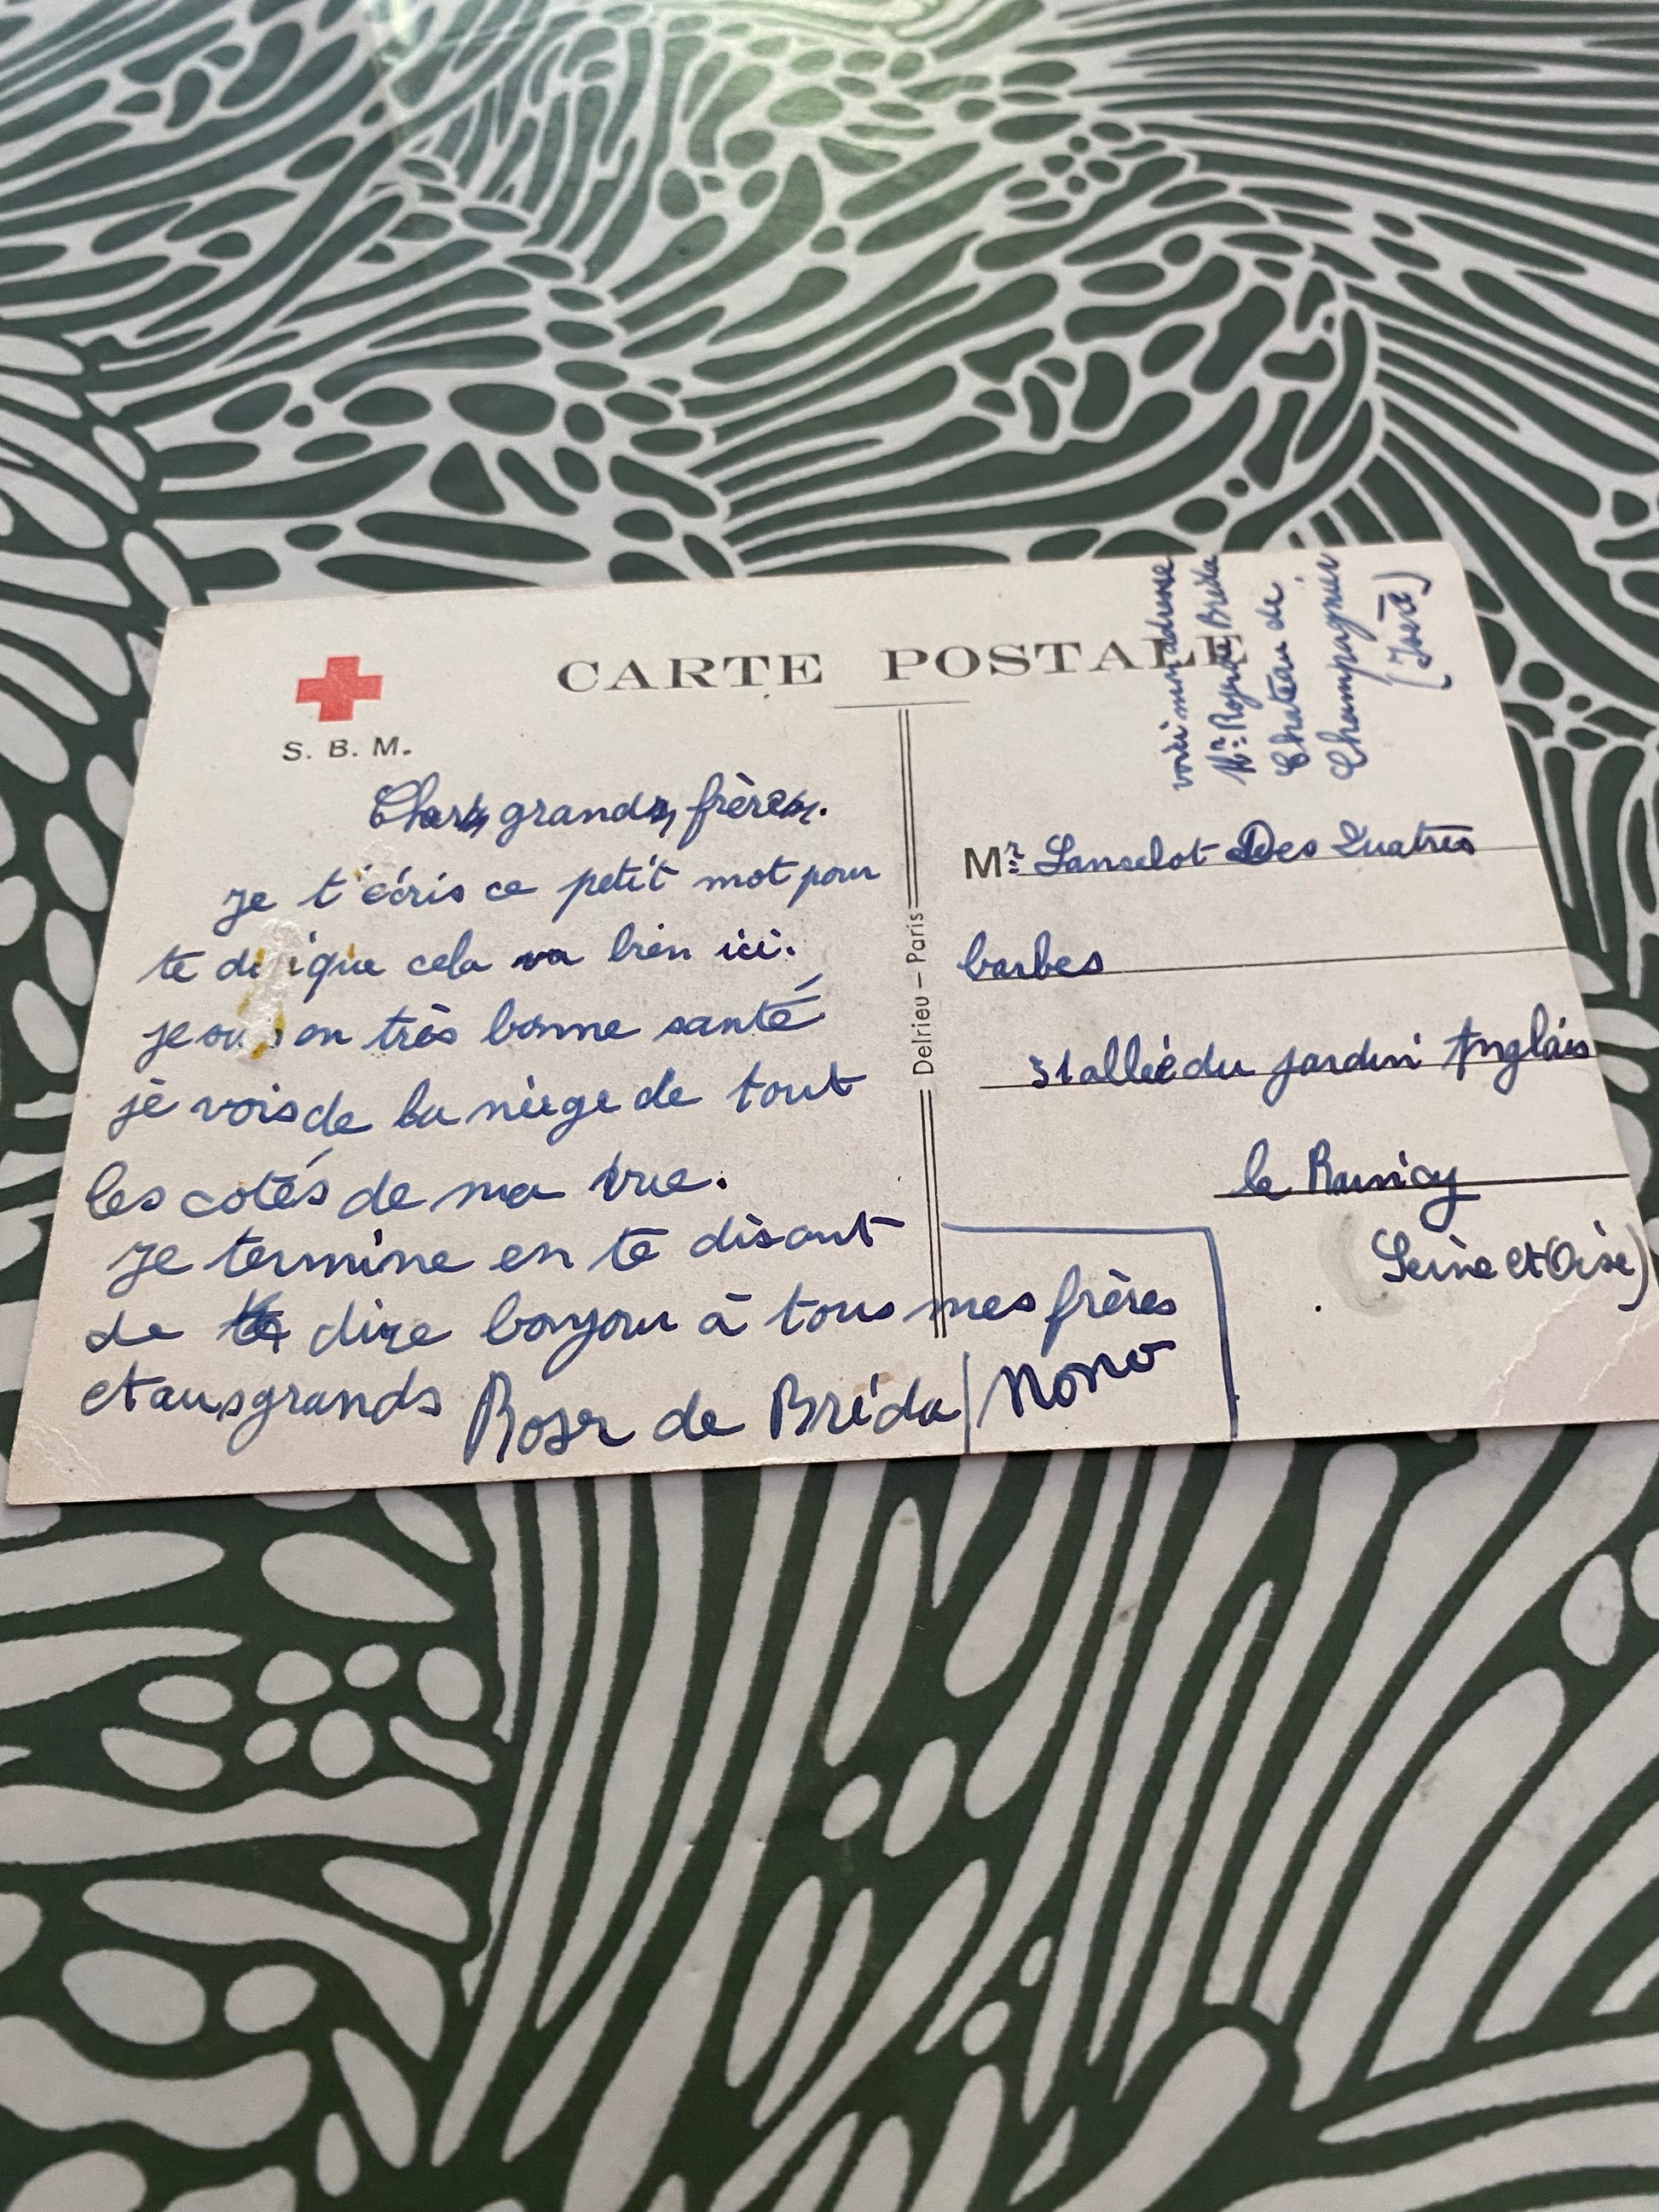 CARTE POSTALE
S. B. M.
Chers grands frères.
Je t'écris ce petit mot pour
te di que cela va bien ici.
je suis en très bonne santé
je vois de la neige de tout
les cotés de ma vue.
Je termine en te disant
de dire bonjou à tous mes frères
et aus grands
Roser de Bréda
Nono
Delrieu – Paris
voici mon adresse
Mr Bréda
Chateau de
Champagnier
(Isère)
Mr Lancelot Des Quatres
barbes
31 allée du jardin Anglais
le Raincy
(Seine et Oise)